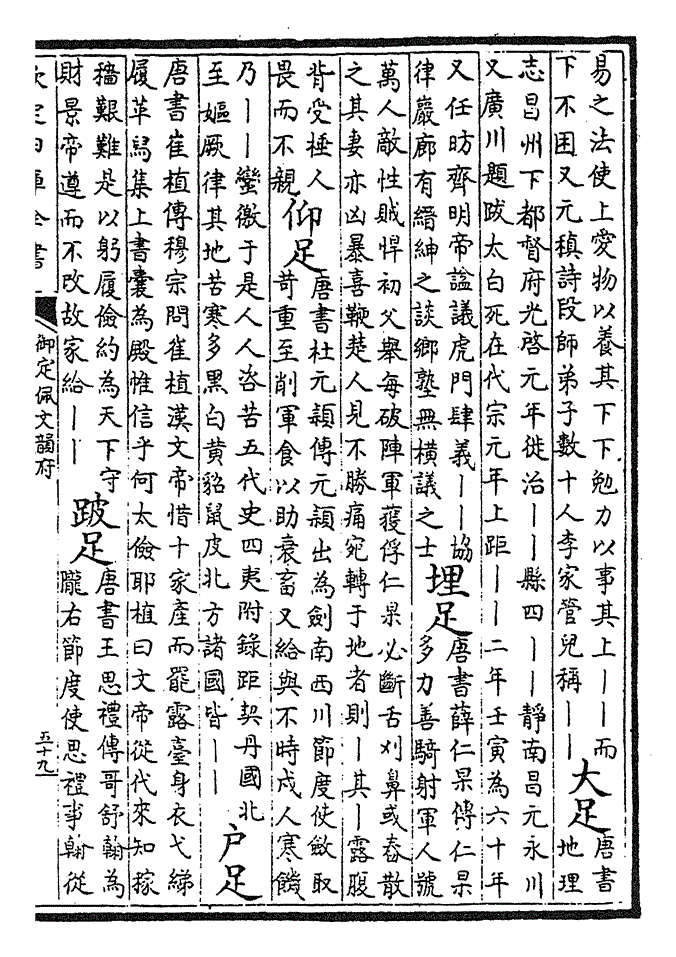 易之法使上愛物以養其下下勉力以事其上丨丨而
下不困又元稹詩段師弟子數十人李家管兒稱丨丨
大足
唐書
地理
志昌州下都督府光啓元年徙治丨丨縣四丨丨靜南昌元永川
又廣川題跋太白死在代宗元年上距丨丨二年壬寅為六十年
又任昉齊明帝諡議虎門肆義丨丨協
律嚴廊有縉紳之談鄉塾無橫議之士
埋足
唐書薛仁杲傳仁杲
多力善騎射軍人號
萬人敵性賊悍初父舉每破陣軍獲俘仁杲必斷舌刈鼻或舂散
之其妻亦凶暴喜鞭楚人見不勝痛宛轉于地者則丨其丨露腹
背受捶人
畏而不親
仰足
唐書杜元穎傳元穎出為劍南西川節度使斂取
苛重至削軍食以助裒畜又給與不時戍人寒饑
乃丨丨蠻徼于是人人咨苦五代史四夷附錄距契丹國北
至嫗厥律其地苦寒多黑白黄貂鼠皮北方諸國皆丨丨
戶足
唐書崔植傳穆宗問崔植漢文帝惜十家產而罷露臺身衣弋綈
履革舄集上書囊為殿帷信乎何太儉耶植曰文帝從代來知稼
穡艱難是以躬履儉約為天下守
財景帝遵而不改故家給丨丨
跛足
唐書王思禮傳哥舒翰為
隴右節度使思禮事翰從
欽定四庫全書
御定佩文韻府
五十九